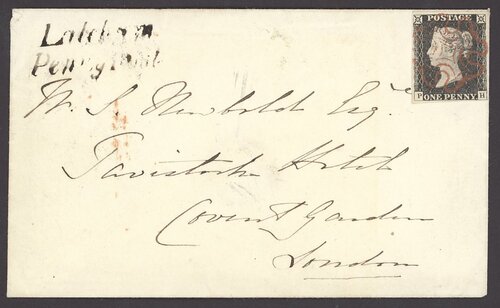 Penny Post
POSTAGE
ONE PENNY
W. S. Newbolt Esqre
Tavistock Hotel
Covent Garden
London